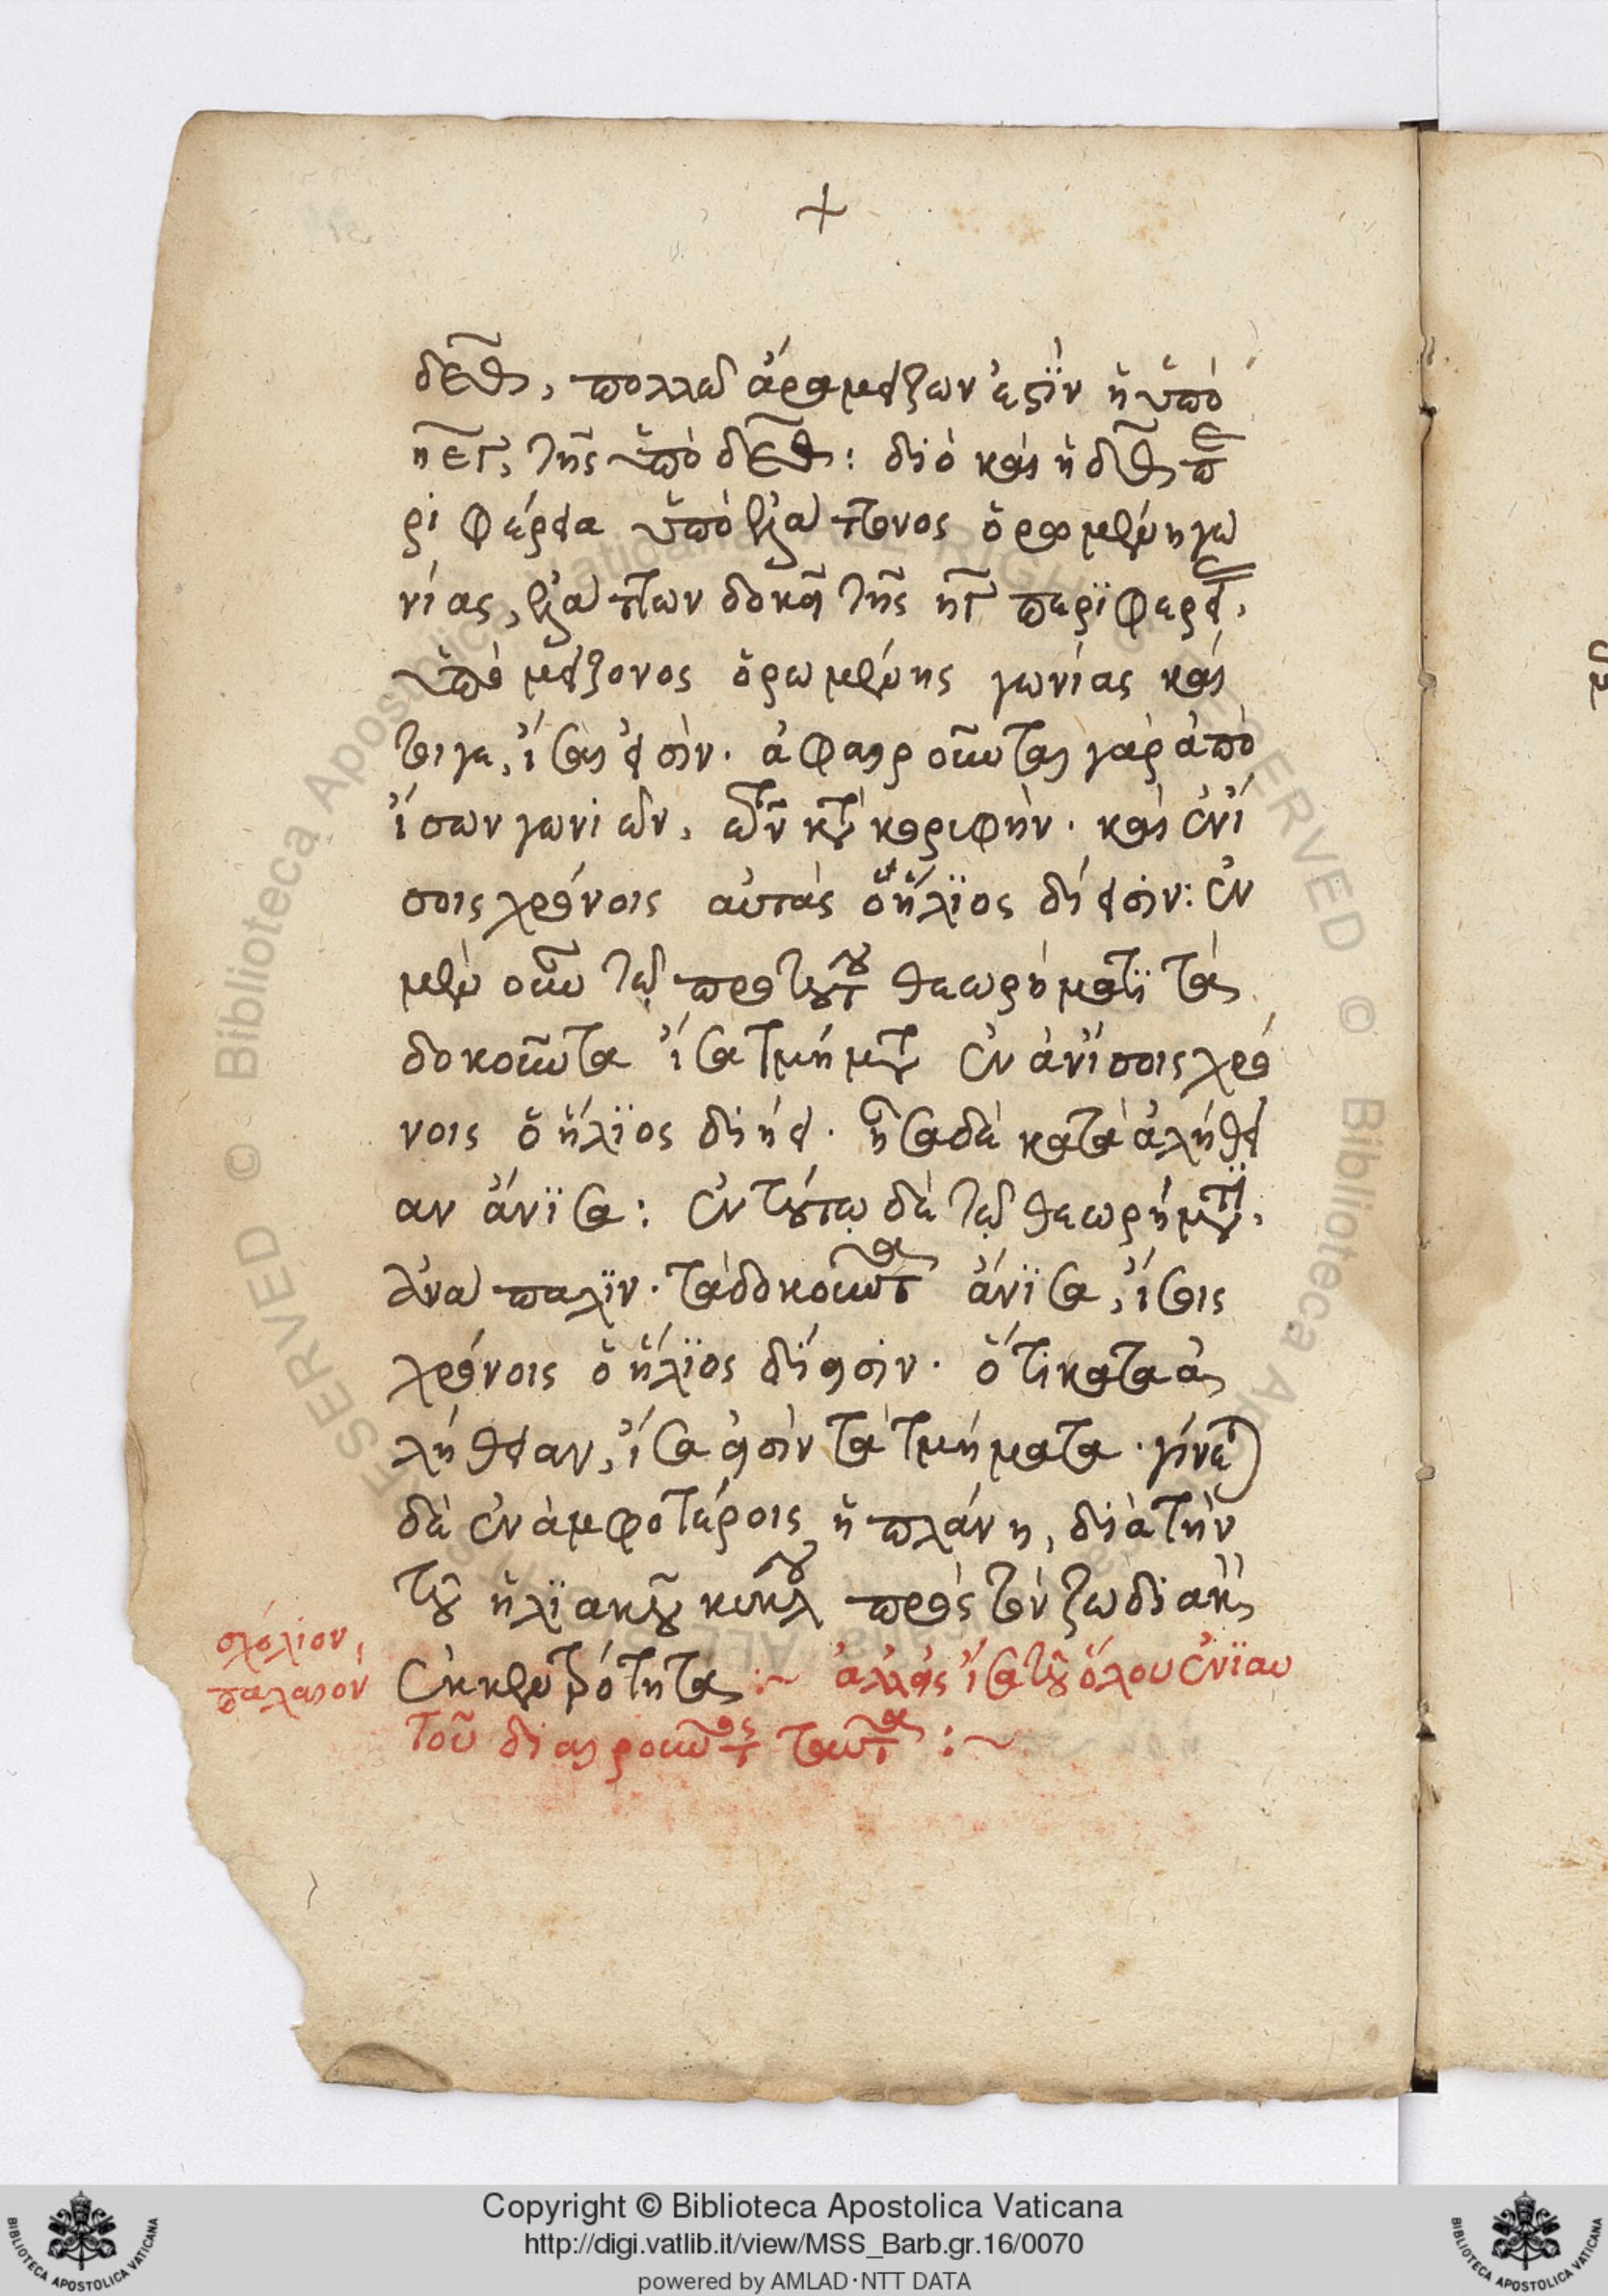 δεθ, πολλῶ ἄρα μείζων ἐστὶν ἡ ὑπὸ
ηεγ, τῆς ὑπὸ δεθ: διὸ καὶ ἡ δθ πε
ριφέρεια ὑπὸ ἐλάττονος ὁρωμένη γω
νίας, ἐλάττων δοκεῖ τῆς ηγ περιφερεί,
ὑπὸ μείζονος ὁρωμένης γωνίας καί
τοιγε, ἴσαι εἰσίν. ἀφαιροῦνται γὰρ ἀπὸ
ἴσων γωνιῶν, τῶν κατὰ κορυφήν. καὶ ἐν ἴ
σοις χρόνοις αὐτὰς ὁ ἥλιος δίεισιν: ἐν
μὲν οὖν τῷ πρὸ τούτου θεωρήματι τὰ
δοκοῦντα ἴσα τμήματα ἐν ἀνίσοις χρό
νοις ὁ ἥλιος διῄει. ἦσαν δὲ κατὰ ἀλήθει
αν ἄνισα: ἐν τούτῳ δὲ τῷ θεωρήματι,
ἀνάπαλιν. τὰ δοκοῦντα ἄνισα, ἴσοις
χρόνοις ὁ ἥλιος δίεισιν. ὅτι κατὰ ἀ
λήθειαν, ἴσα εἰσὶν τὰ τμήματα. γίνεται
δὲ ἐν ἀμφοτέροις ἡ πλάνη, διὰ τὴν
τοῦ ἡλιακοῦ κύκλου πρὸς τὸν ζωδιακὸν
ἐκκεντρότητα :~ ἀλλὰς ἴσα τοῦ ὅλου ἐνιαυ
τοῦ διαιροῦντος ταῦτα :~
σχόλιον,
παλαιὸν
Copyright © Biblioteca Apostolica Vaticana
http://digi.vatlib.it/view/MSS_Barb.gr.16/0070
powered by AMLAD·NTT DATA
BIBLIOTECA APOSTOLICA VATICANA
BIBLIOTECA APOSTOLICA VATICANA